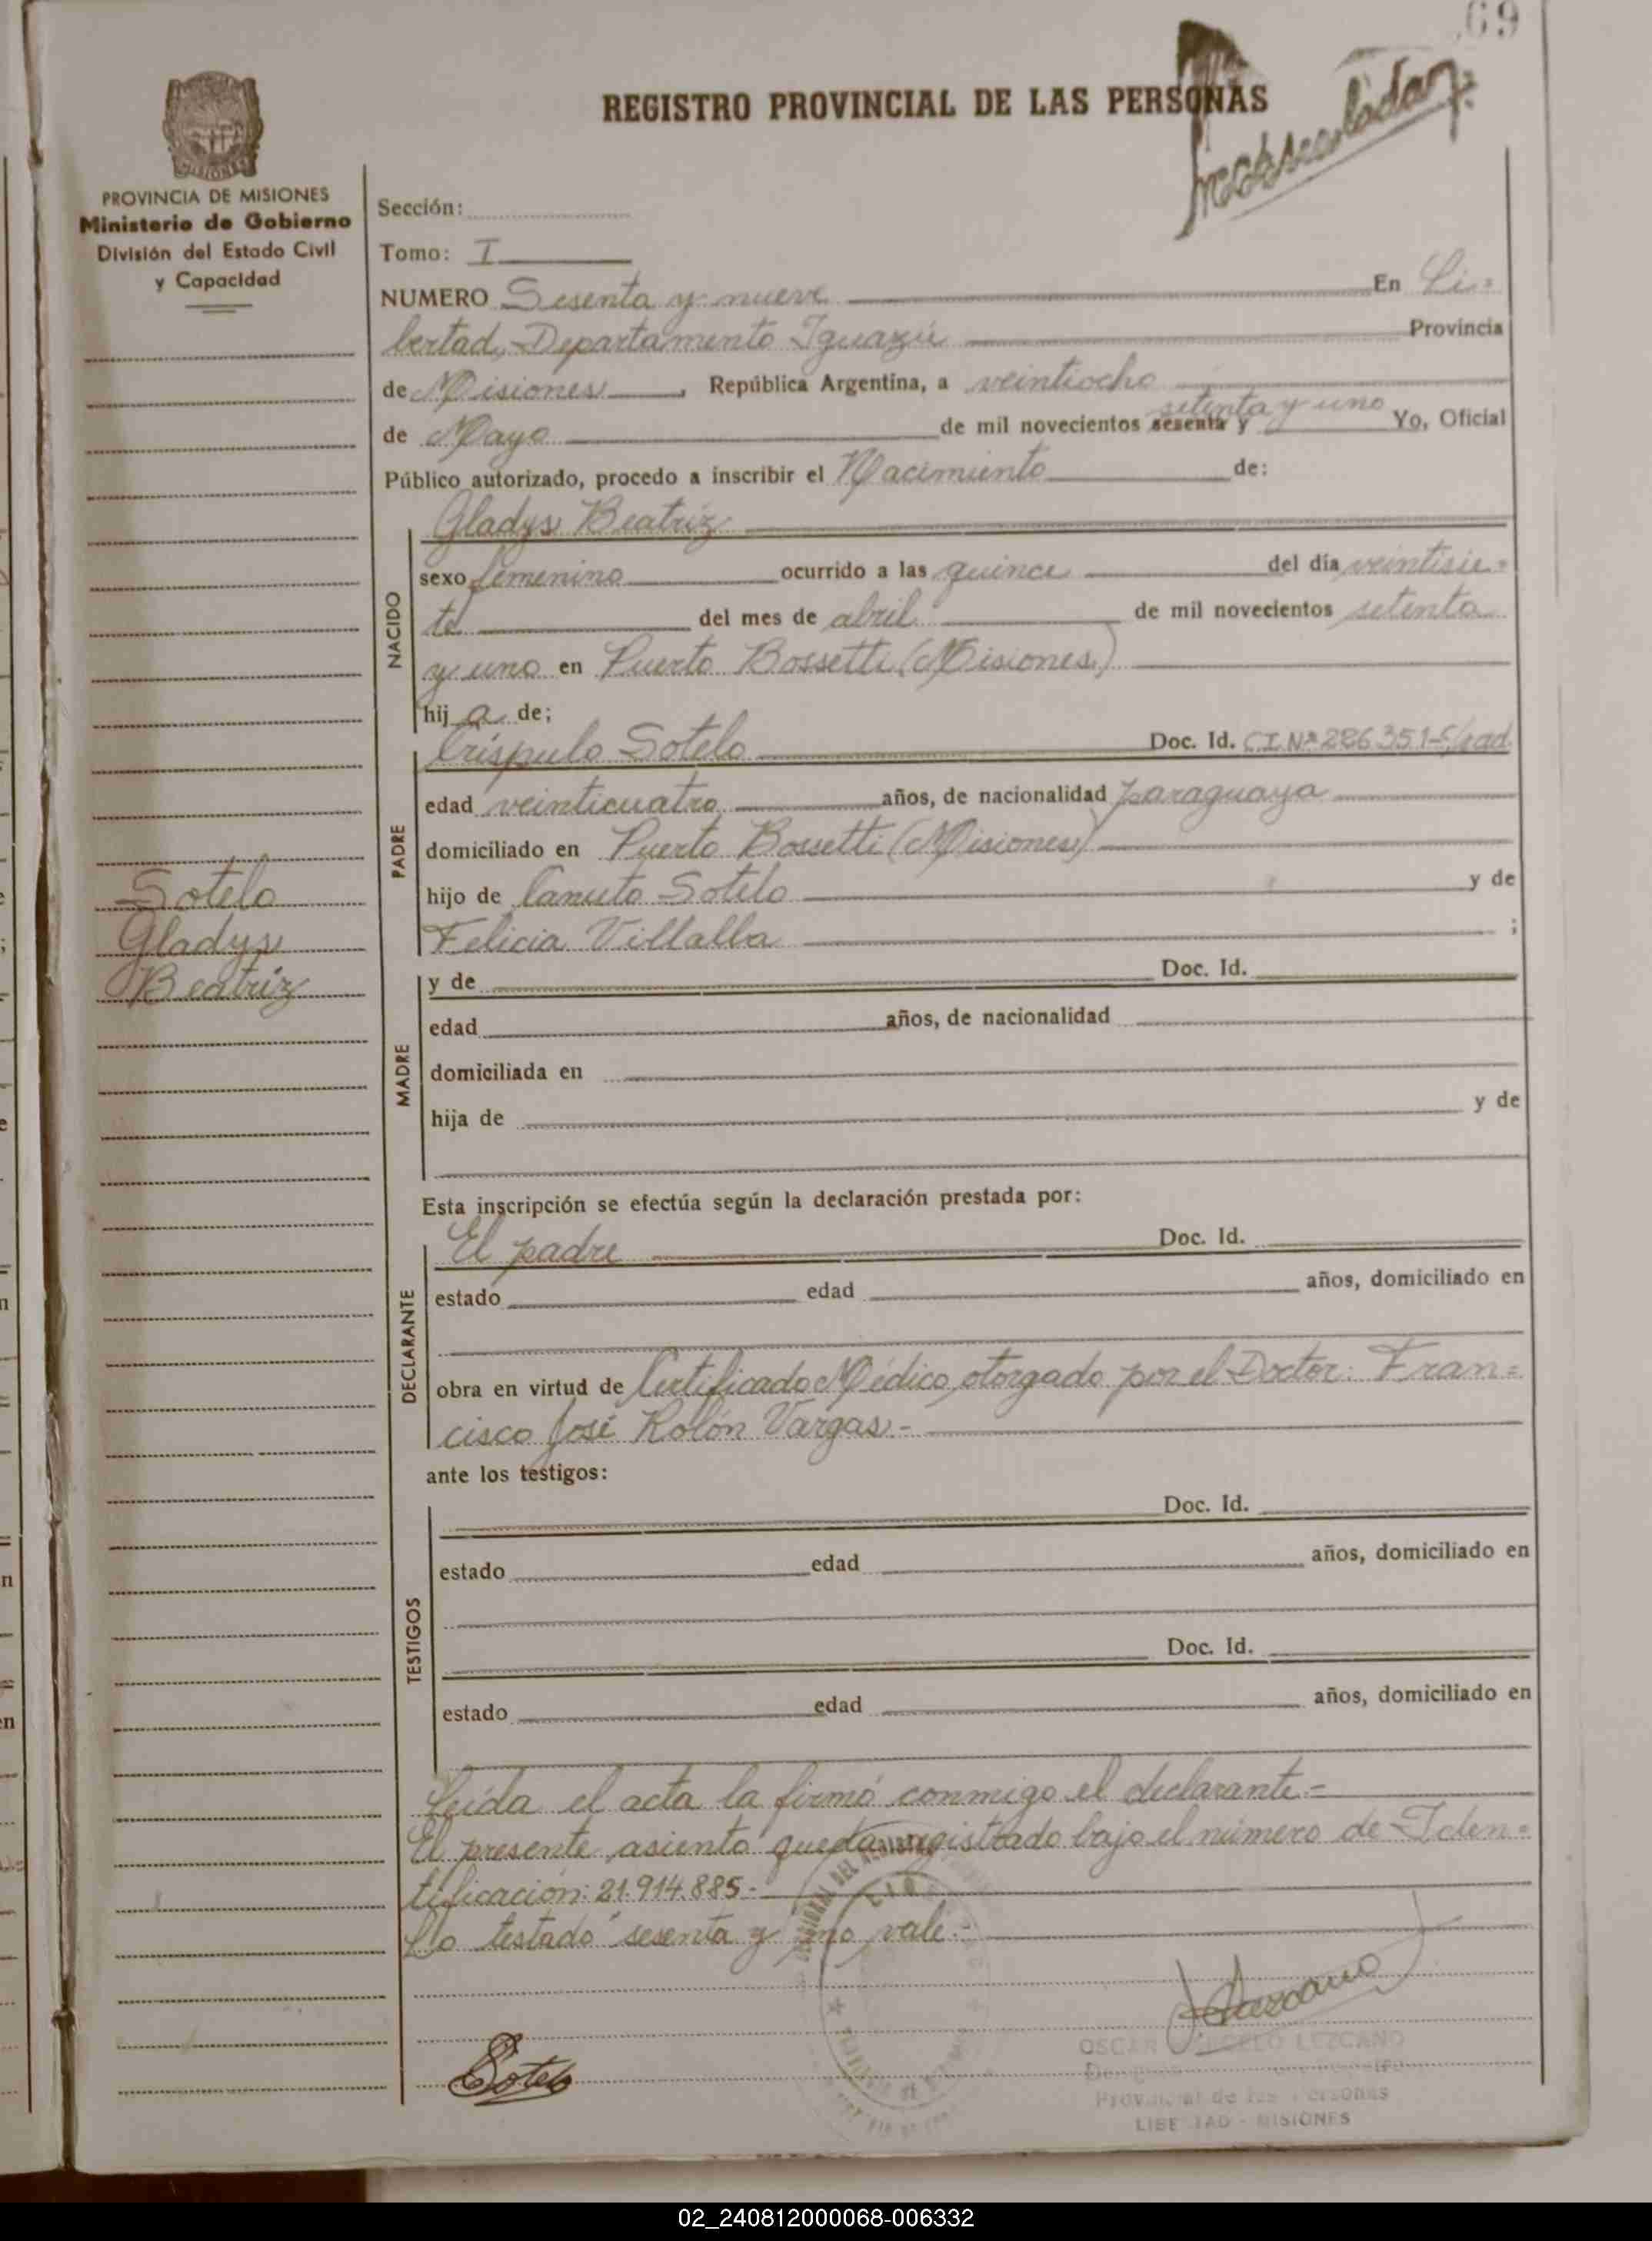 69
REGISTRO PROVINCIAL DE LAS PERSONAS
MISIONES
PROVINCIA DE MISIONES
Ministerio de Gobierno
División del Estado Civil
y Capacidad
Sección:
Tomo: I
NUMERO Sesenta y nueve En Li=
bertad, Departamento Iguazú Provincia
de Misiones, República Argentina, a veintiocho
setenta y uno
de Mayo de mil novecientos sesenta y Yo, Oficial
Público autorizado, procedo a inscribir el Nacimiento de:
NACIDO
Gladys Beatriz
sexo femenino ocurrido a las quince del día veintisie=
te del mes de abril de mil novecientos setenta
y uno en Puerto Bossetti (Misiones)
hij a de;
PADRE
Críspulo Sotelo Doc. Id. C.I. Nº 286.351-
edad veinticuatro años, de nacionalidad paraguaya
domiciliado en Puerto Bossetti (Misiones)
hijo de Canuto Sotelo y de
Felicia Villalba ;
Sotelo
Gladys
Beatriz
MADRE
y de Doc. Id.
edad años, de nacionalidad
domiciliada en
hija de y de
Esta inscripción se efectúa según la declaración prestada por:
DECLARANTE
El padre Doc. Id.
estado edad años, domiciliado en
obra en virtud de Certificado Médico otorgado por el Doctor: Fran=
cisco José Rolón Vargas.-
ante los testigos:
TESTIGOS
Doc. Id.
estado edad años, domiciliado en
Doc. Id.
estado edad años, domiciliado en
Leída el acta la firmó conmigo el declarante.=
El presente asiento queda registrado bajo el número de Iden=
tificación: 21.914.885.-
Lo testado "sesenta y no vale.-
Sotelo
OSCAR LEZCANO
Provincial de las Personas
LIBERTAD - MISIONES
02_240812000068-006332